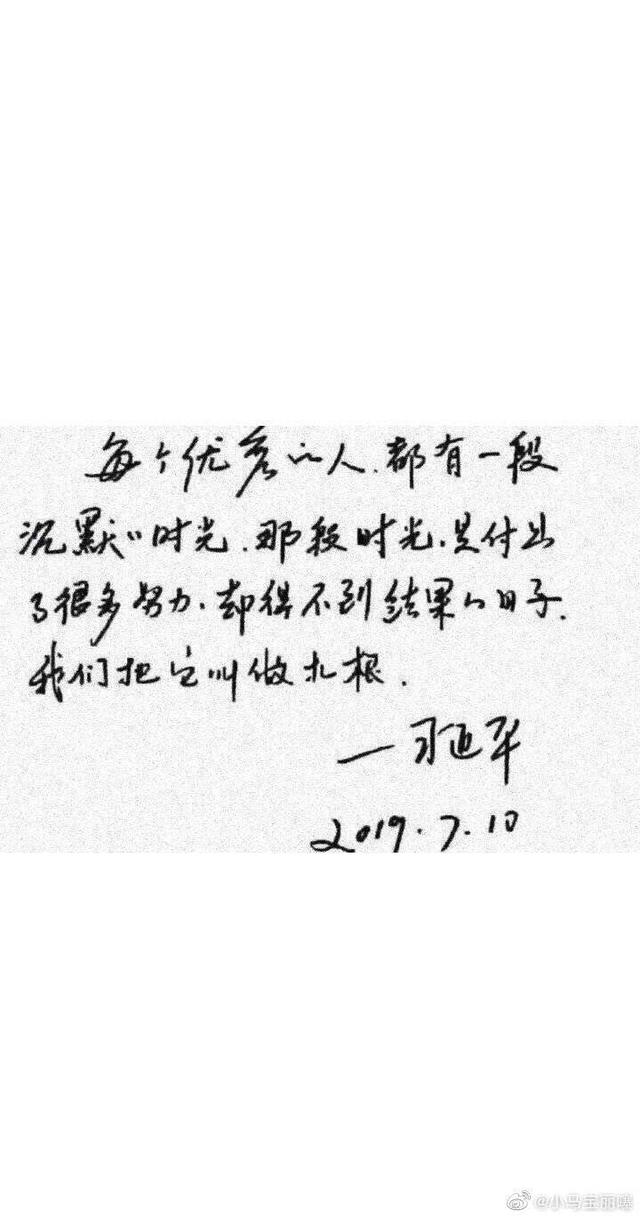 每个优秀的人.都有一段
沉默的时光.那段时光.是付出
了很多努力.却得不到结果的日子.
我们把它叫做扎根.
—习近平
2019.7.10
@小马宝丽噻